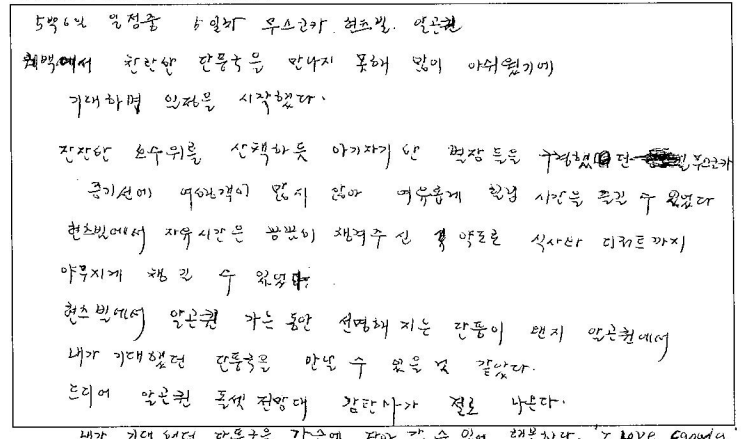 5박6일 일정중 5일차 무스코카. 헌츠빌. 알곤퀸
퀘백에서 찬란한 단풍국을 만나지 못해 많이 아쉬웠기에
기대하며 일정을 시작했다.
잔잔한 호수위를 산책하듯 아기자기 한 별장 들을 구경했던 무스코카
증기선에 여행객이 많지 않아 여유롭게 힐링 시간을 즐길 수 있었다
헌츠빌에서 자유시간은 꼼꼼이 챙겨주신 약도로 식사와 디저트까지
야무지게 챙길 수 있었다.
헌츠빌에서 알곤퀸 가는 동안 선명해 지는 단풍이 왠지 알곤퀸에서
내가 기대했던 단풍국을 만날 수 있을 것 같았다.
드디어 알곤퀸 돌셋 전망대 감탄사가 절로 나온다.
내가 기대 했던 단풍국을 가슴에 담아 갈 수 있어 행복하다. I love